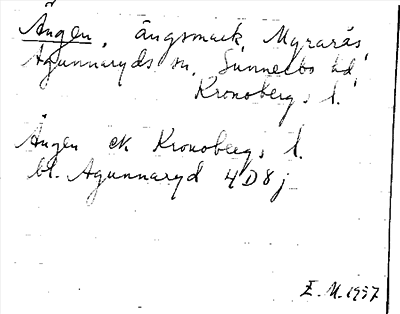 Ängen, ängsmark, Myrarås,
Agunnaryds sn, Sunnerbo hd,
Kronobergs l.
Ängen ek Kronobergs l.
bl. Agunnaryd 4D8j
E. M. 1957